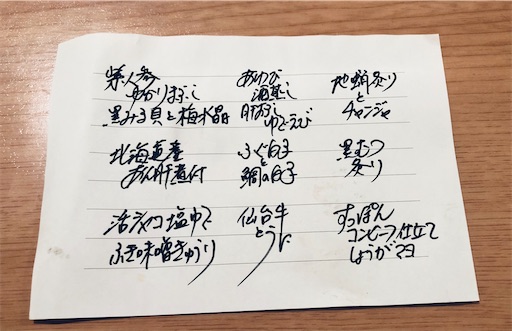 紫人参
ゆかりまぶし
黒みる貝と梅水晶
あわび
酒蒸し
ゆでえび
地蛸炙り
と
チャンジャ
北海道産
あん肝直付
ふぐ白子
と
鯛白子
黒むつ
炙り
塩ゆで
ふき味噌きゅうり
仙台牛
とうに
すっぽん
コンビーフ仕立て
しょうがマヨ